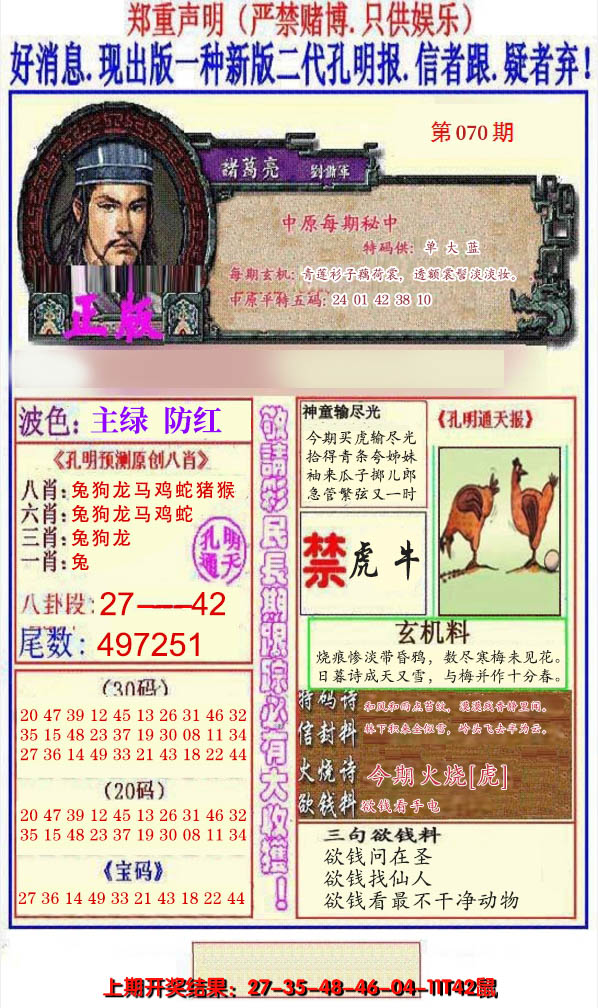 郑重声明（严禁赌博.只供娱乐）
好消息.现出版一种新版二代孔明报.信者跟.疑者弃！
第070期
諸葛亮 劉備軍
中原每期秘中
特码供：单 大 蓝
每期玄机：青莲衫子藕荷裳，透额裳髻淡淡妆。
中原平特五码：24 01 42 38 10
正版
波色：主绿 防红
《孔明预测原创八肖》
八肖：兔狗龙马鸡蛇猪猴
六肖：兔狗龙马鸡蛇
三肖：兔狗龙
一肖：兔
孔明
通天
八卦段：27——42
尾数：497251
（30码）
20 47 39 12 45 13 26 31 46 32
35 15 48 23 37 19 30 08 11 34
27 36 14 49 33 21 43 18 22 44
（20码）
20 47 39 12 45 13 26 31 46 32
35 15 48 23 37 19 30 08 11 34
《宝码》
27 36 14 49 33 21 43 18 22 44
敬請彩民長期跟踪必有大收獲！
神童输尽光
今期买虎输尽光
拾得青条夸姊妹
袖来瓜子掷儿郎
急管繁弦又一时
《孔明通天报》
禁 虎 牛
玄机料
烧痕惨淡带昏鸦，数尽寒梅未见花。
日暮诗成天又雪，与梅并作十分春。
特码诗 和风和雨点苔纹，漠漠残香静里闻。
信封料 林下积来全似雪，岭头飞去半为云。
火烧诗 今期火烧[虎]
欲钱料 欲钱看手电
三句欲钱料
欲钱问在圣
欲钱找仙人
欲钱看最不干净动物
上期开奖结果：27-35-48-46-04-11T42鼠